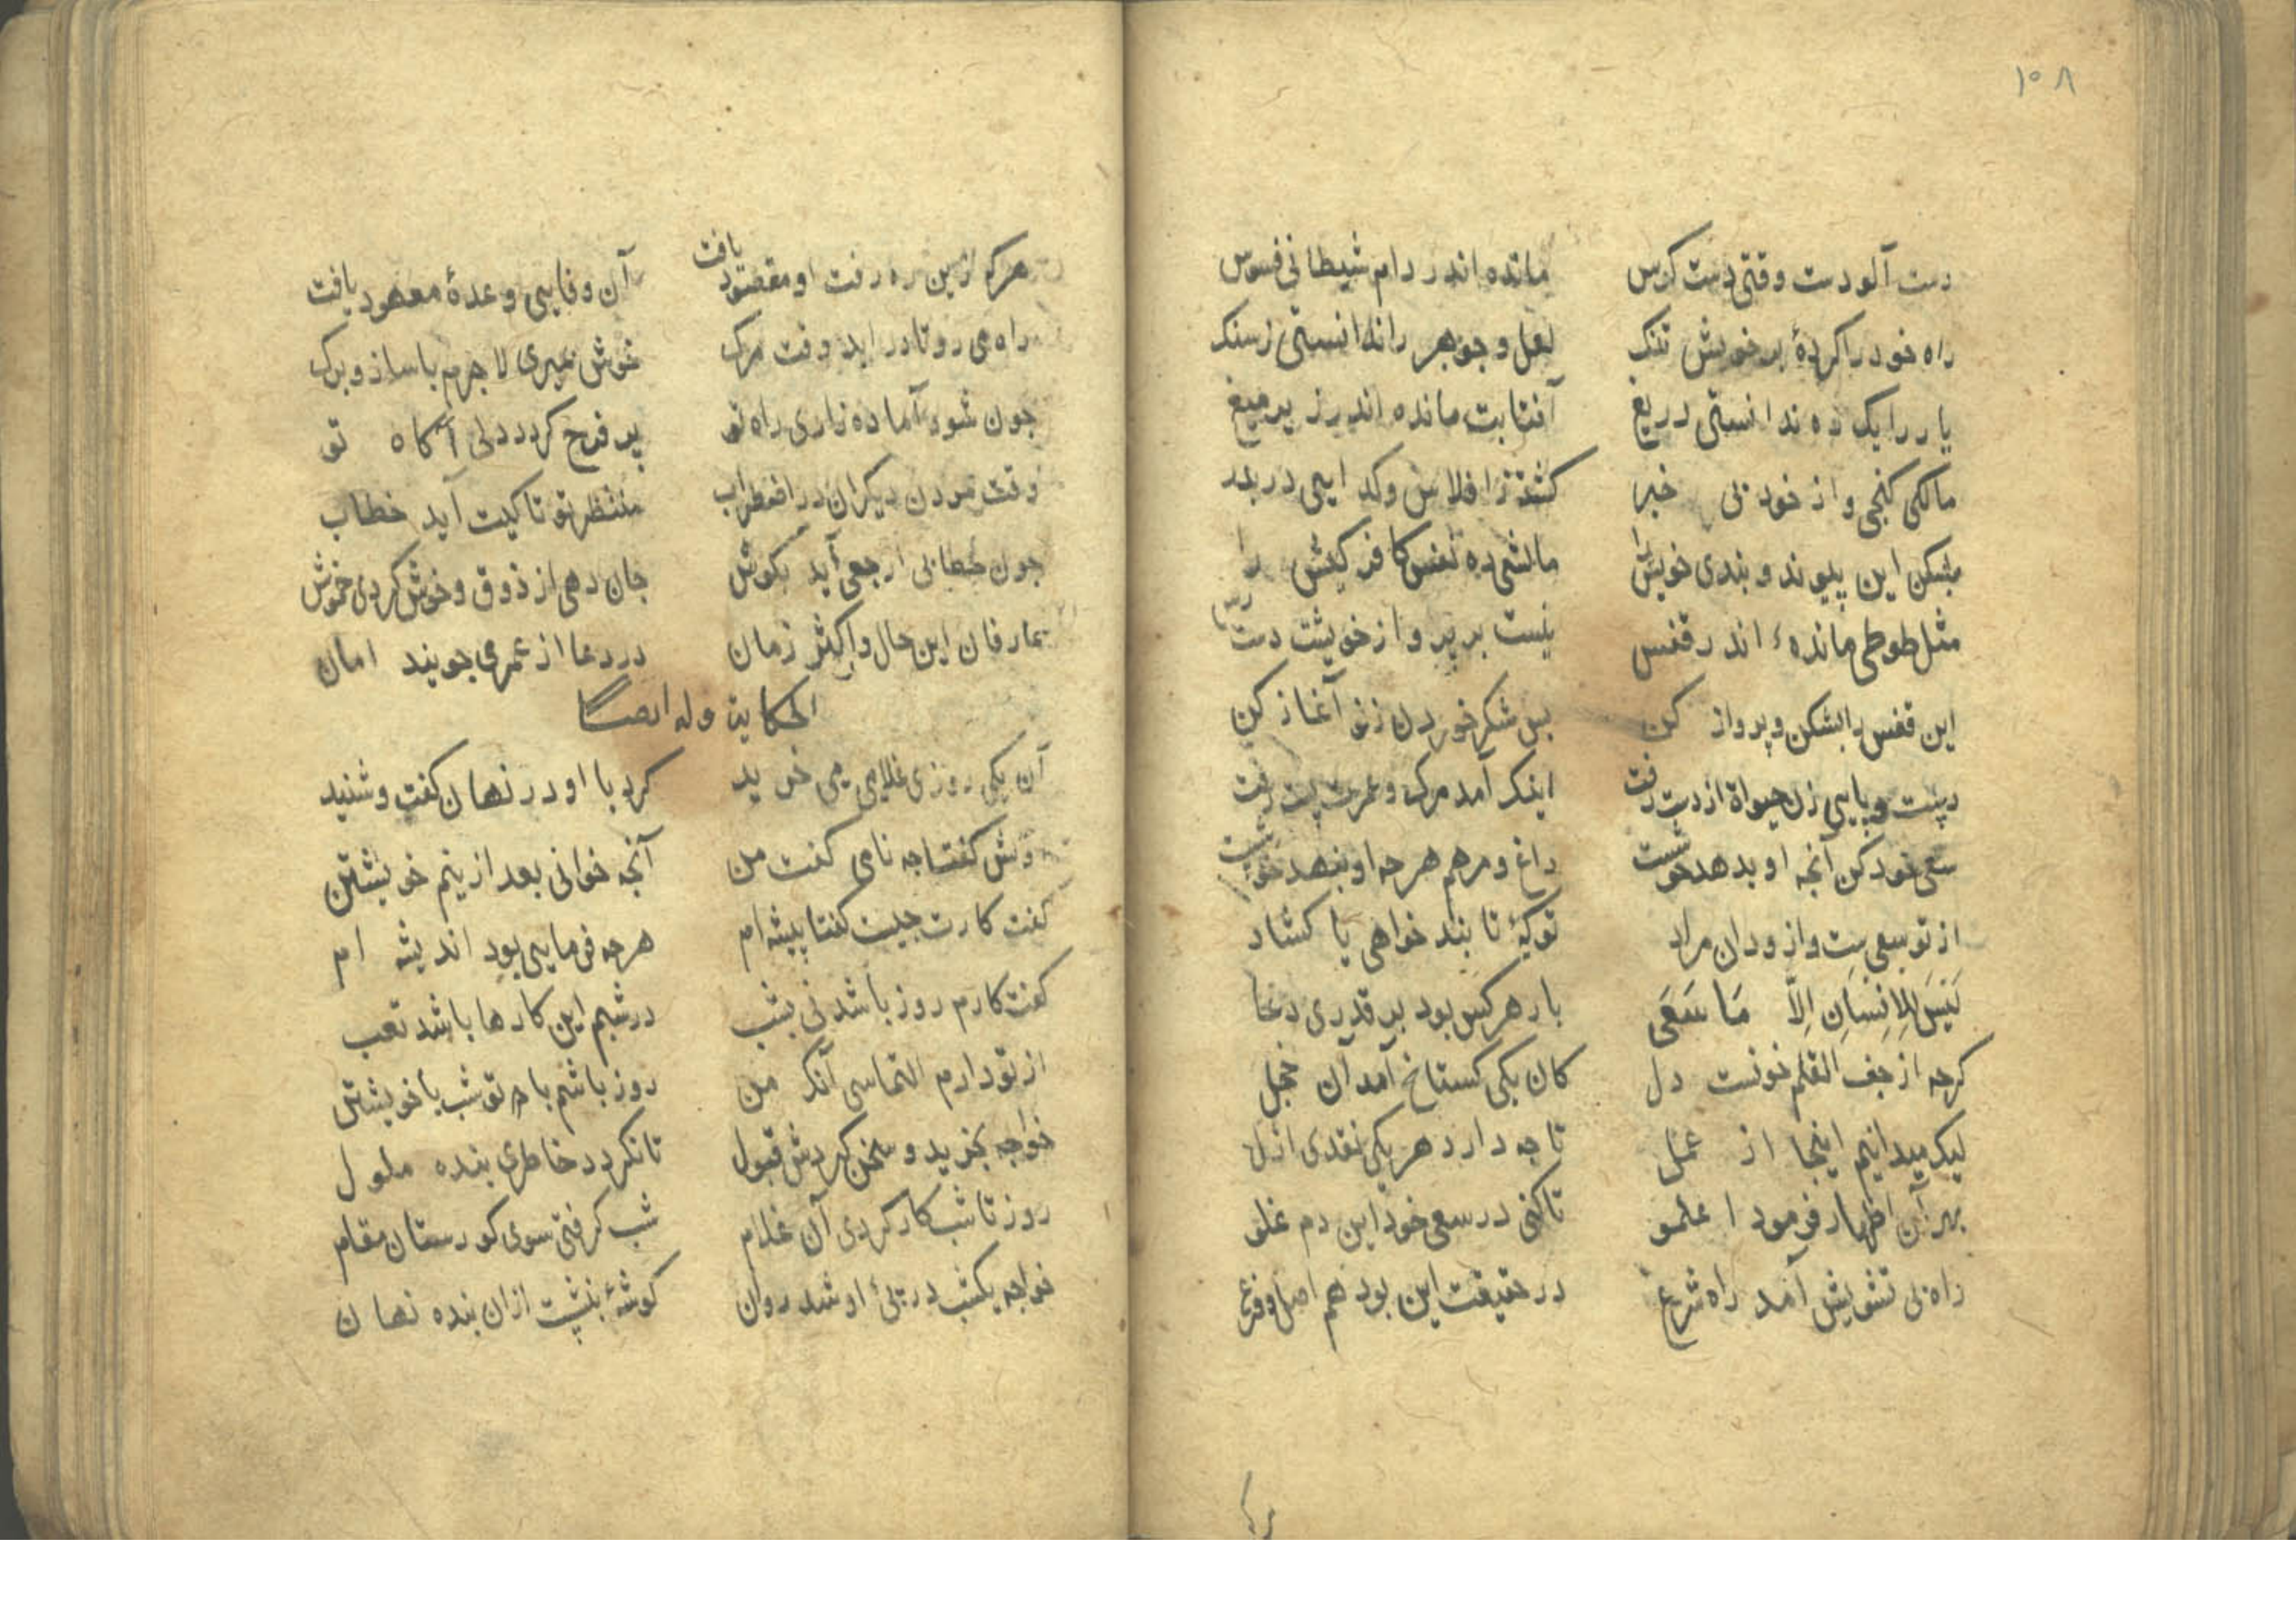 ۱۰۸
دست آلودست وقتی دست کرس مانده اندر دام شیطانی فسوس
راه خود را کردهٔ بر خویش تنک لعل و جوهر را ندانستی زسنک
یار را یک ده ندانستی دریغ آفتابت مانده اندر زیر میغ
مالکی کنجی و از خود بی خبر کشته زافلاس وکدایی در بدر
بشکن این پیوند و بندی خویش را مالشی ده نفس کافر کیش را
مثل طوطی ماندهٔ اندر قفس نیست بر پرواز خویشت دست رس
این قفس را بشکن و پرواز کن بس شکر خوردن زنو آغاز کن
دست و پایی زن حیوة از دست رفت اینک آمد مرک و عمرت رفت
سعی خود کن آنجه او بدهد خوشست داغ و مرهم هرجه او بنهد خوشست
از تو سعی ست واز ودان مراد تو کهٔ تا بند خواهی یا کشاد
لَیسَ لِلاِنسَانِ اِلَّا مَا سَعَی بار هر کس بود بر قدری دعا
کرجه از جف القلم خونست دل کان یکی کستاخ آمد آن خجل
لیک میدانیم اینجا از عمل تا جه دارد هر یکی نقدی ازل
بهر آن اظهار فرمود اعلمو تا کنی در سعی خود این دم غلو
راه بی تشویش آمد راه شرع در حقیقت این بود هم اصل و فرع
هرکه زین ره رفت او مقصود یافت آن وفایی وعدهٔ معهود یافت
راه می رو تا در اید وقت مرک خوش بمیری لا جرم با ساز و برک
جون شود آماده زاری راه تو پر فرح کردد دلی آکاه تو
وقت مردن دیکران در اضطراب منتظر تو تا کیت آید خطاب
جون خطابی ارجعی آید بکوش جان دهی از ذوق و خوش کردی خموش
عارفان این حال و اکثر زمان در دعا از عمری جویند امان
الحکایت وله ایضا
آن یکی روزی غلامی می خرید کرد با او در نهان کفت و شنید
کفتا جه نامی کفت من آنجه خوانی بعد ازینم خویشتن
کفت کارت جیست کفتا پیشه ام هرجه فرمایی بود اندیشه ام
کفت کارم روز باشد نی بشب در شبم این کارها باشد تعب
از تو دارم التماسی آنک من روز باشم با تو شب با خویشتن
خواجه بخرید و سخن کردش قبول تا نکردد خاطری بنده ملول
روز تا شب کار کردی آن غلام شب کرفتی سوی کورستان مقام
خواجه یکشب در پیٔ او شد روان کوشهٔ بنشست ازان بنده نهان